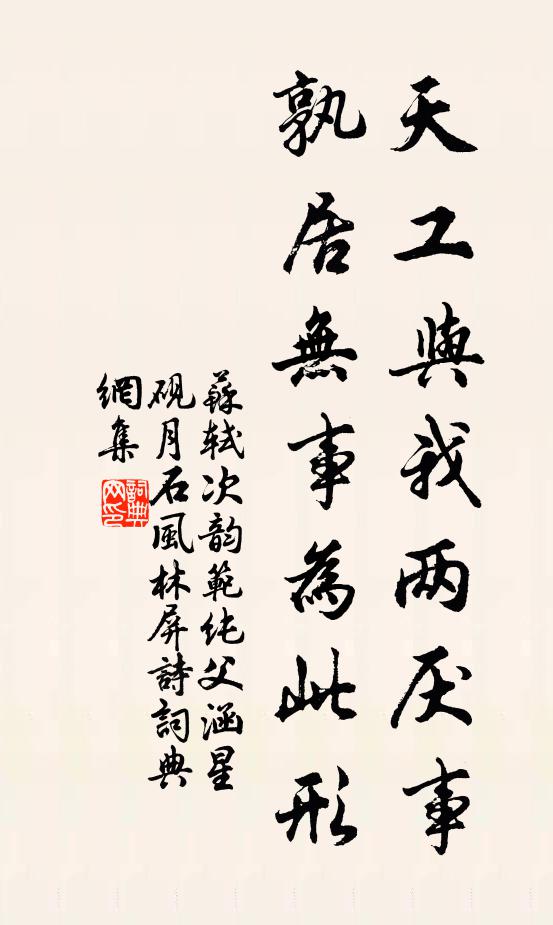 天工與我两厌事
孰居無事為此形
蘇軾次韵範純父涵星
硯月石風林屏詩詞典
網集
詞典網印